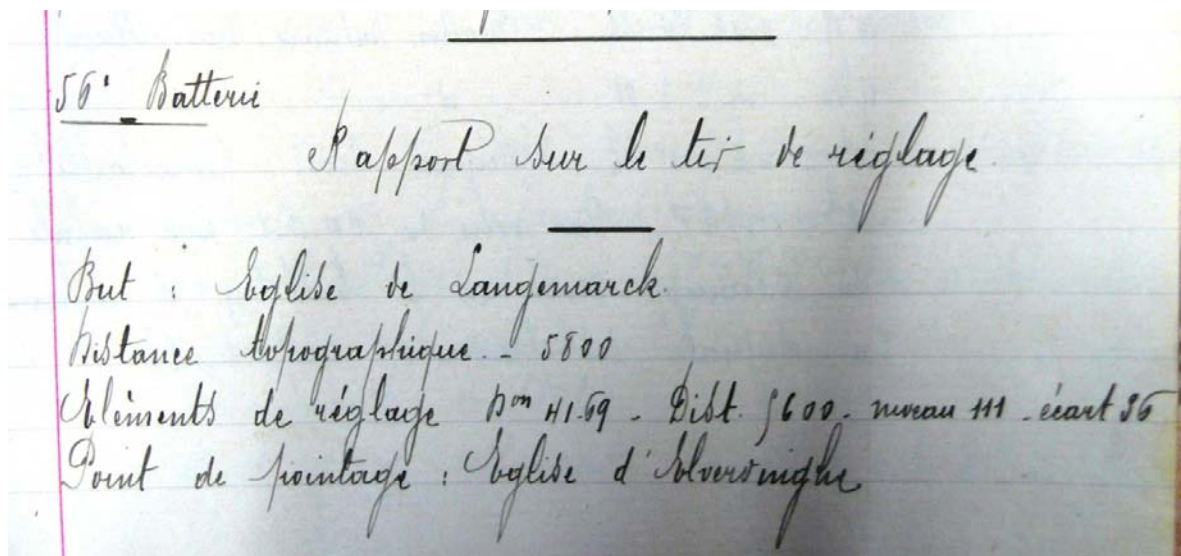 56e Batterie
Rapport sur le tir de réglage.
But : Eglise de Langemarck.
Distance topographique. - 5800
Eléments de réglage Don 41.69 - Dist. 5600 - niveau 111 - écart 36
Point de pointage : Eglise d'Elverdinghe